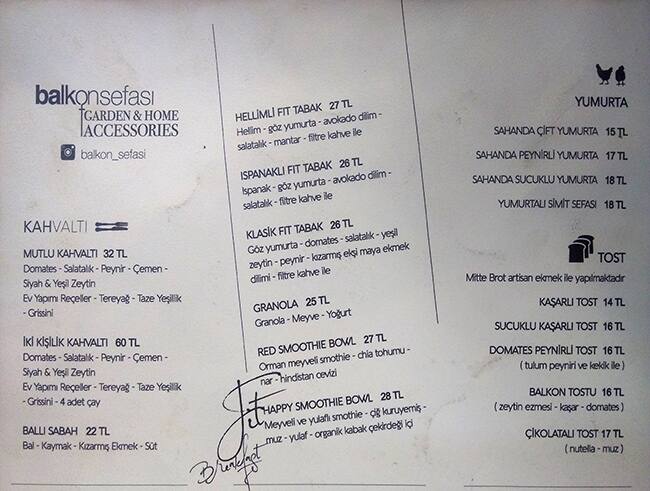 balkonsefası
GARDEN & HOME
ACCESSORIES
balkon_sefasi
KAHVALTI
MUTLU KAHVALTI 32 TL
Domates - Salatalık - Peynir - Çemen -
Siyah & Yeşil Zeytin
Ev Yapımı Reçeller - Tereyağ - Taze Yeşillik
- Grissini
İKİ KİŞİLİK KAHVALTI 60 TL
Domates - Salatalık - Peynir - Çemen -
Siyah & Yeşil Zeytin
Ev Yapımı Reçeller - Tereyağ - Taze Yeşillik
- Grissini - 4 adet çay
BALLI SABAH 22 TL
Bal - Kaymak - Kızarmış Ekmek - Süt
HELLİMLİ FIT TABAK 27 TL
Hellim - göz yumurta - avokado dilim -
salatalık - mantar - filtre kahve ile
ISPANAKLI FIT TABAK 26 TL
Ispanak - göz yumurta - avokado dilim -
salatalık - filtre kahve ile
KLASİK FIT TABAK 26 TL
Göz yumurta - domates - salatalık - yeşil
zeytin - peynir - kızarmış ekşi maya ekmek
dilimi - filtre kahve ile
GRANOLA 25 TL
Granola - Meyve - Yoğurt
RED SMOOTHIE BOWL 27 TL
Orman meyveli smothie - chia tohumu -
nar - hindistan cevizi
HAPPY SMOOTHIE BOWL 28 TL
Meyveli ve yulaflı smothie - çiğ kuruyemiş -
muz - yulaf - organik kabak çekirdeği içi
Fit
Breakfast
YUMURTA
SAHANDA ÇİFT YUMURTA 15 TL
SAHANDA PEYNİRLİ YUMURTA 17 TL
SAHANDA SUCUKLU YUMURTA 18 TL
YUMURTALI SİMİT SEFASI 18 TL
TOST
Mitte Brot artisan ekmek ile yapılmaktadır
KAŞARLI TOST 14 TL
SUCUKLU KAŞARLI TOST 16 TL
DOMATES PEYNİRLİ TOST 16 TL
( tulum peyniri ve kekik ile )
BALKON TOSTU 16 TL
( zeytin ezmesi - kaşar - domates )
ÇİKOLATALI TOST 17 TL
( nutella - muz )